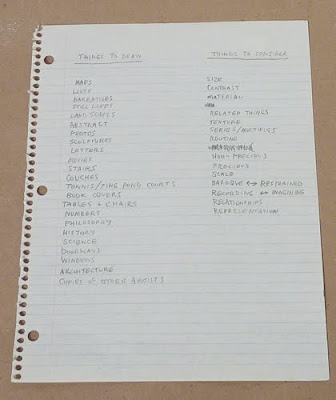 THINGS TO DRAW
MAPS
LISTS
NARRATIVES
STILL LIFES
LANDSCAPES
ABSTRACT
PHOTOS
SCULPTURES
LETTERS
MOVIES
STAIRS
COUCHES
TENNIS/PING PONG COURTS
BOOK COVERS
TABLES & CHAIRS
NUMBERS
PHILOSOPHY
HISTORY
SCIENCE
DOORWAYS
WINDOWS
ARCHITECTURE
COPIES OF OTHER ARTISTS
THINGS TO CONSIDER
SIZE
CONTRAST
MATERIAL
RELATED THINGS
TEXTURE
SERIES/MULTIPLES
ROUTINE
NON-PRECIOUS
PRECIOUS
SCALE
BAROQUE ↔ RESTRAINED
RECORDING ↔ IMAGINING
RELATIONSHIPS
REPRESENTATION